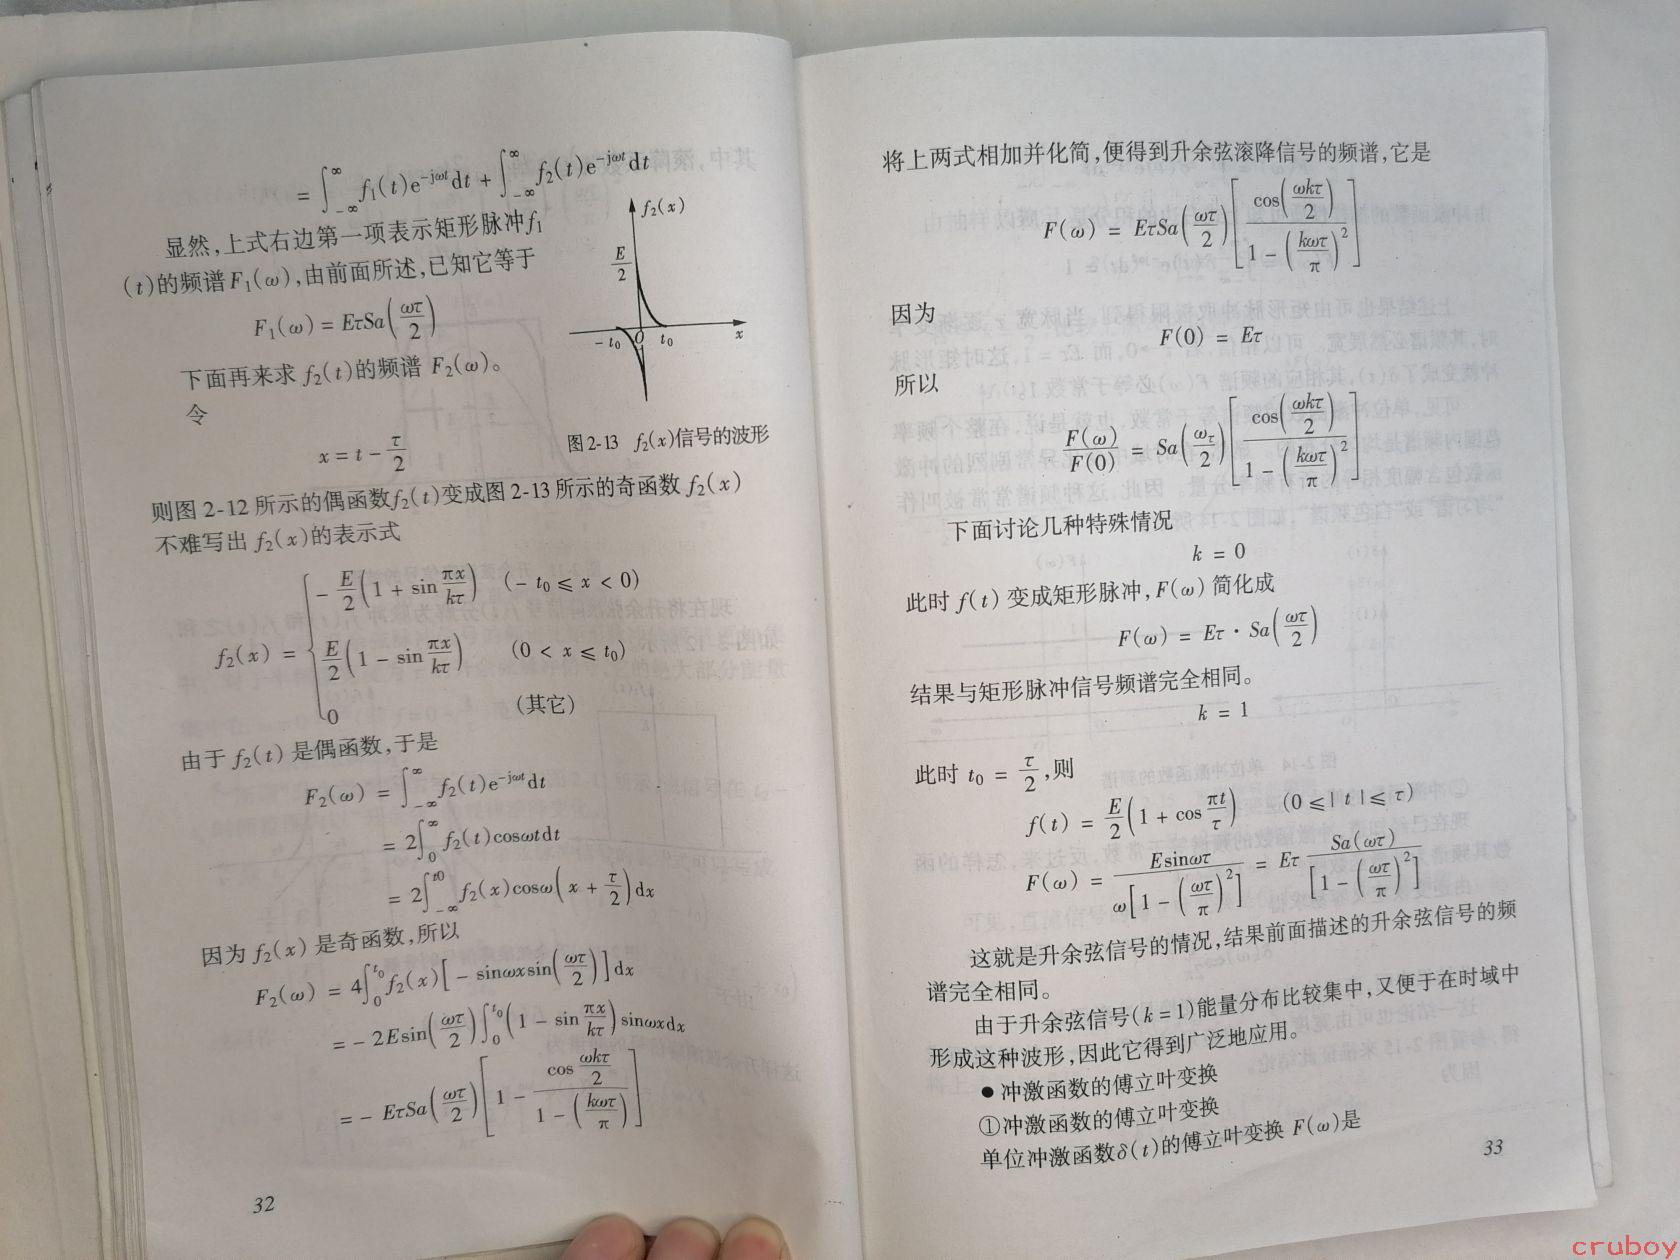 = ∫_{-∞}^{∞} f₁(t)e^{-jωt}dt + ∫_{-∞}^{∞} f₂(t)e^{-jωt}dt
显然,上式右边第一项表示矩形脉冲f₁
(t)的频谱F₁(ω),由前面所述,已知它等于
F₁(ω) = EτSa(ωτ/2)
下面再来求 f₂(t)的频谱 F₂(ω)。
令
x = t - τ/2
f₂(x)
E/2
-t₀ O t₀ x
图2-13 f₂(x)信号的波形
则图 2-12 所示的偶函数f₂(t)变成图 2-13 所示的奇函数 f₂(x)
不难写出 f₂(x)的表示式
f₂(x) = { -E/2(1 + sin πx/kτ) (-t₀ ≤ x < 0)
E/2(1 - sin πx/kτ) (0 < x ≤ t₀)
0 (其它)
由于 f₂(t) 是偶函数,于是
F₂(ω) = ∫_{-∞}^{∞} f₂(t)e^{-jωt}dt
= 2∫_{0}^{∞} f₂(t)cosωtdt
= 2∫_{-∞}^{t0} f₂(x)cosω(x + τ/2)dx
因为 f₂(x) 是奇函数,所以
F₂(ω) = 4∫_{0}^{t₀} f₂(x)[-sinωxsin(ωτ/2)]dx
= -2Esin(ωτ/2)∫_{0}^{t₀}(1 - sin πx/kτ)sinωxdx
= -EτSa(ωτ/2)[1 - (cos ωkτ/2)/(1 - (kωτ/π))]
32
将上两式相加并化简,便得到升余弦滚降信号的频谱,它是
F(ω) = EτSa(ωτ/2)[cos(ωkτ/2)/(1 - (kωτ/π)²)]
因为
F(0) = Eτ
所以
F(ω)/F(0) = Sa(ωτ/2)[cos(ωkτ/2)/(1 - (kωτ/π)²)]
下面讨论几种特殊情况
k = 0
此时 f(t) 变成矩形脉冲,F(ω) 简化成
F(ω) = Eτ · Sa(ωτ/2)
结果与矩形脉冲信号频谱完全相同。
k = 1
此时 t₀ = τ/2,则
f(t) = E/2(1 + cos πt/τ) (0 ≤ | t | ≤ τ)
F(ω) = Esinωτ/ω[1 - (ωτ/π)²] = Eτ Sa(ωτ)/[1 - (ωτ/π)²]
这就是升余弦信号的情况,结果前面描述的升余弦信号的频
谱完全相同。
由于升余弦信号(k = 1)能量分布比较集中,又便于在时域中
形成这种波形,因此它得到广泛地应用。
● 冲激函数的傅立叶变换
①冲激函数的傅立叶变换
单位冲激函数δ(t)的傅立叶变换 F(ω)是
33
cruboy